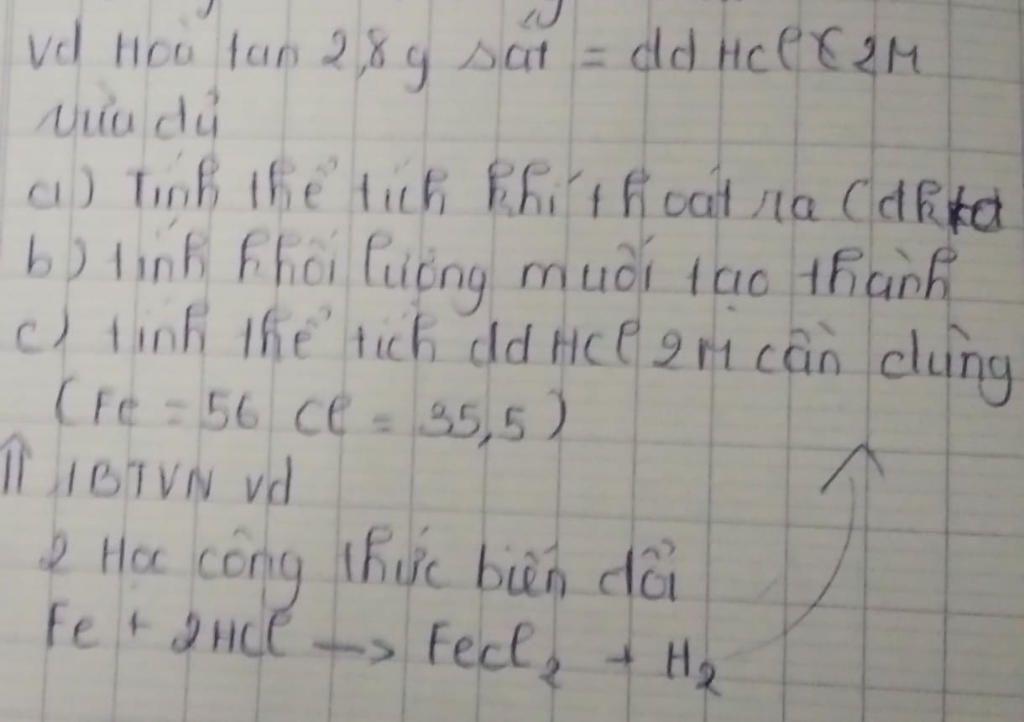 vd Hoà tan 2,8g sắt = dd HCl 2M
vừa đủ
a) Tính thể tích khí thoát ra (đktc
b) tính khối lượng muối tạo thành
c) tính thể tích dd HCl 2M cần dùng
(Fe = 56 Cl = 35,5)
⇑ 1BTVN vd
2 Học công thức biến đổi
Fe + 2HCl → FeCl₂ + H₂